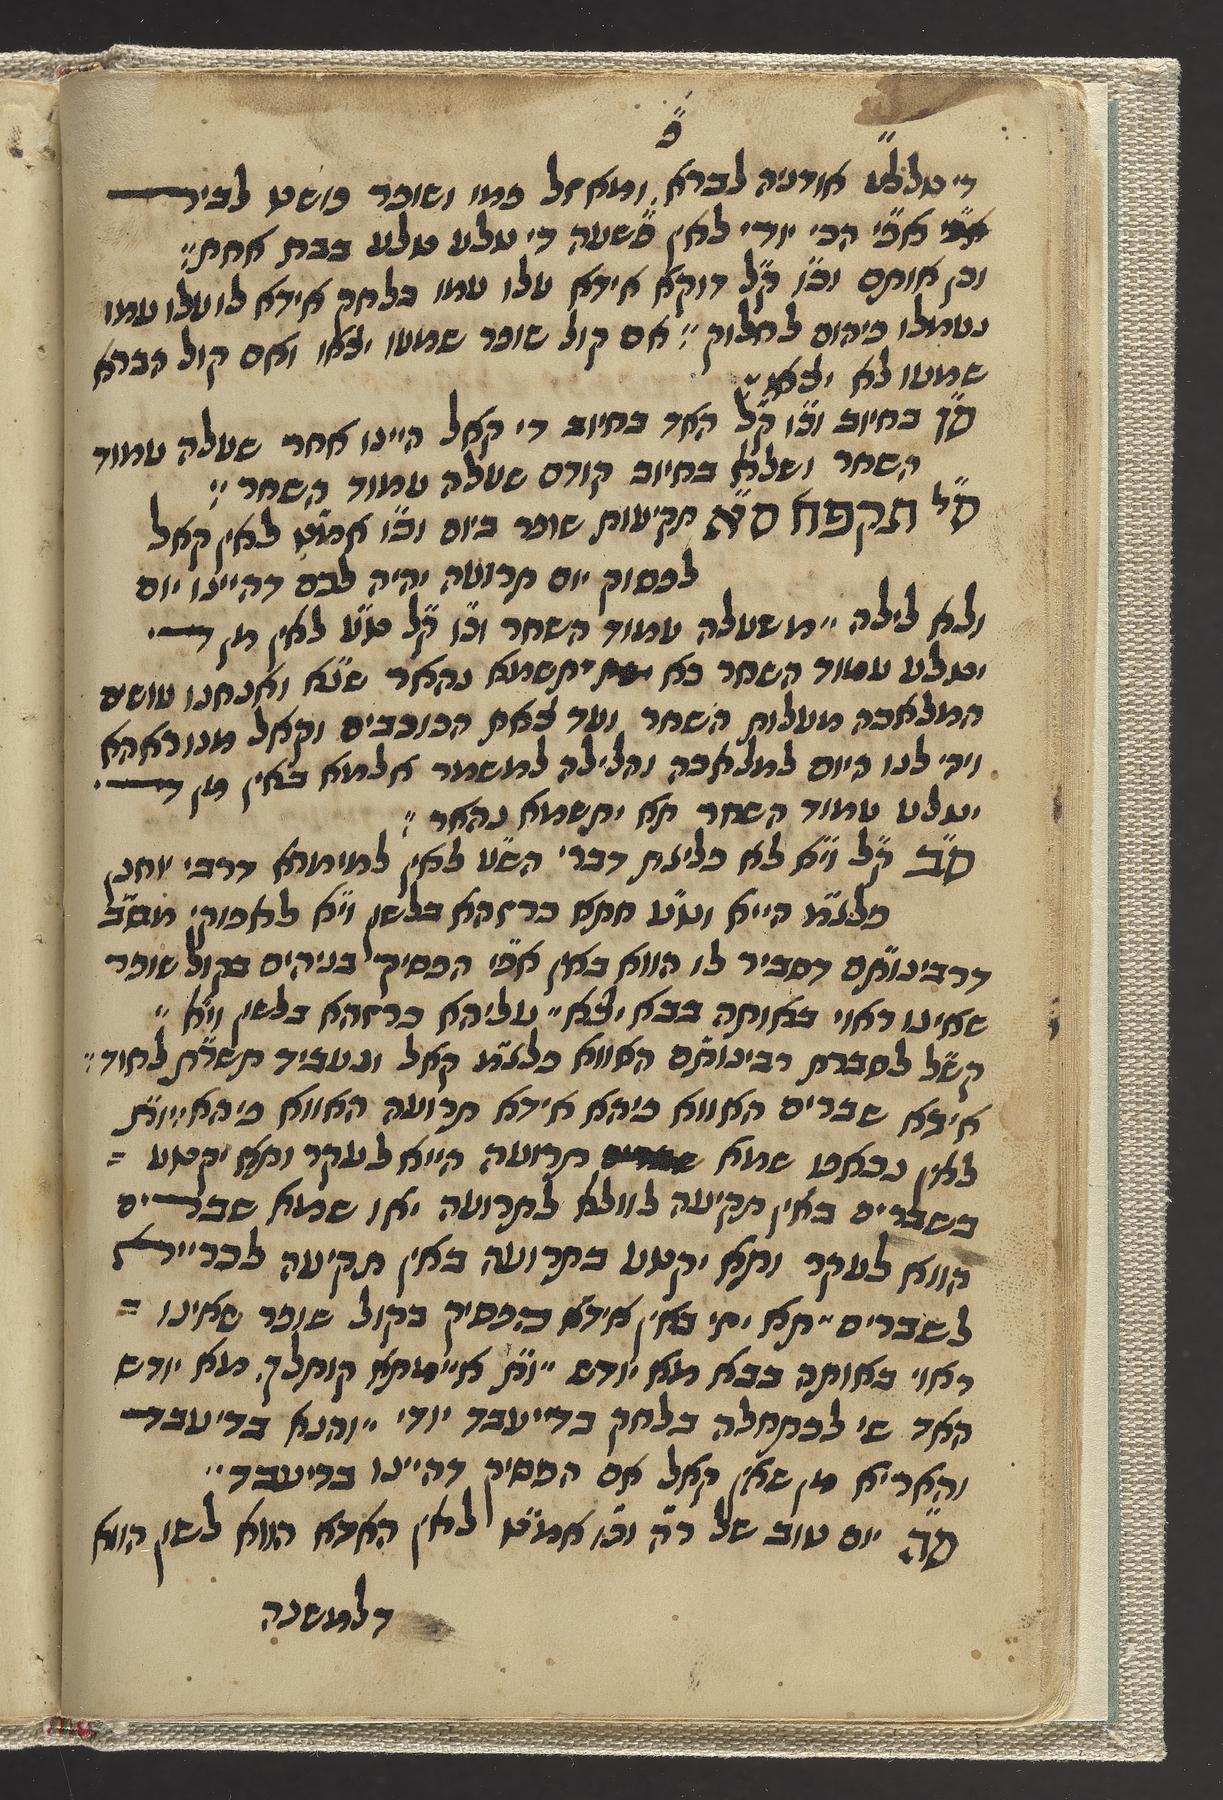 פ֞
די טללע אודניה לברא, ומאזל פמו ושופר פושט לביר
אפי הכי יודי לאין פשעה די טלע טלע בבת אחת״:
וכן אותם וכ״ו ק״ל דוקא אידא עלו עמו בלחק אידא לועלו עמו
נעמלו כיהום לחלוק ״: אם קול שופר שמעו יצאו ואם קול הברא
שמעו לא יצאו״:
ס״ן בחיוב וכ״ו ק״ל האד בחיוב די קאל היינו אחר שעלה עמוד
השחר ושלא בחיוב קודם שעלה עמוד השחר ״:
ס״י תקפח ס״א תקיעות שופר ביום וכ״ו אמ״ט לאין קאל
לפסוק יום תרועה יהיה לכם דהיינו יום
ולא לילה ״ משעלה עמוד השחר וכ״ו ק״ל ט״ע לאין מן די
יטלע עמוד השחר כא יתסמא נהאר שנ״א ואנחנו עושים
המלאכה מעלות השחר ועד צאת הכוכבים וקאל מנוראהא
ויהי לנו היום למלאכה והלילה למשמר אלמא באין מן די
יטלע עמוד השחר תא יתסמא נהאר ״:
ס״ב ק״ל וי״א לא כלינת דברי הש״ע לאין למימרא דרבי יוחנן
כלנ״מ הייא וט״ע חתא כרזהא בלשון וי״א לאפוקי מס״ב
דרבינות״ם דסביר לו הווא באין אפי הפסיק בניהים בקול שופר
שאינו ראוי באותה בבא יצא״ עליהא כרזהא בלשון וי״א ״
קש״ל לסברת רבינות״ם האווא כלנ״מ קאל ונעביד תשר״ת לחוד״:
אידא שברים האווא כיהא אידא תרועה האווא כיהא״: ות״
לאין נכאפו שמא תרועה הייא לעקר ותא יקטע =
בשברים באין תקיעה לוולא לתרועה יאו שמא שברים
הווא לעקר ותא יקטע בתרועה באין תקיעה לכריירא
לשברים״ תא יתי באין אידא הפסיק בקול שופר שאינו =
ראוי באותה בבא מא יודש ״ ות״ איימתא קותלך, מא יודש
האד שי לכתחלה בלחק בדיעבד יודי ״ והנא בדיעבד
והאריא מן שאין קאל אם הפסיק דהיינו בדיעבד״
ס״ה יום טוב של ר״ה וכ״ו אמ״ט לאין האדא הווא לשון הווא
דלמשנה